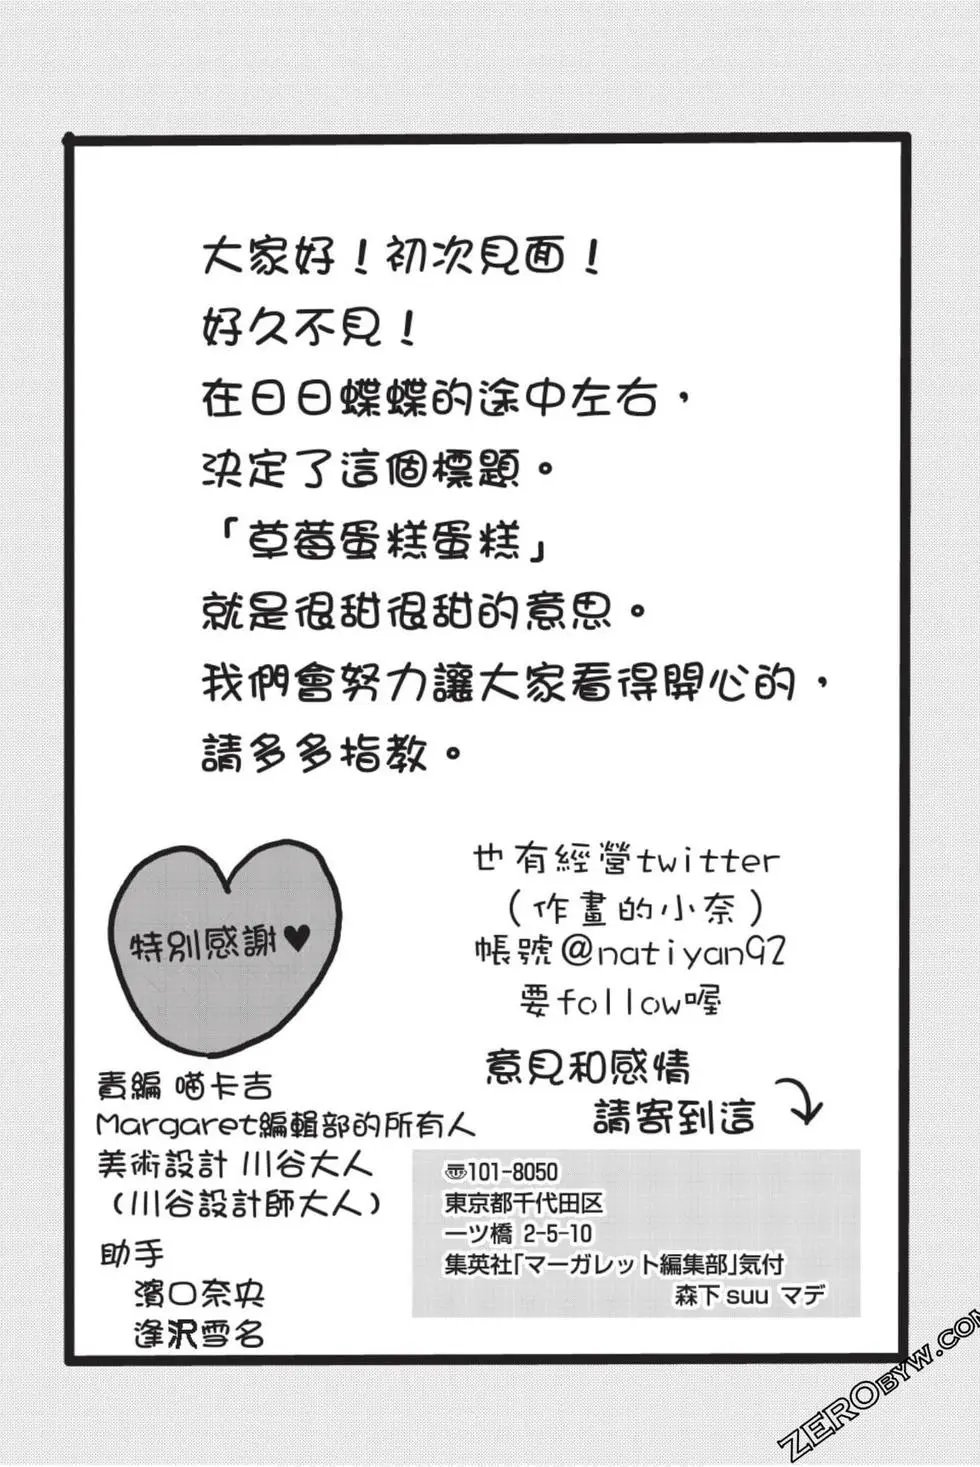 大家好！初次見面！
好久不見！
在日日蝶蝶的途中左右，
決定了這個標題。
「草莓蛋糕蛋糕」
就是很甜很甜的意思。
我們會努力讓大家看得開心的，
請多多指教。
特別感謝♥
責編 喵卡吉
Margaret編輯部的所有人
美術設計 川谷大人
（川谷設計師大人）
助手
濱口奈央
逢沢雪名
也有經營twitter
（作畫的小奈）
帳號@natiyan92
要follow喔
意見和感情
請寄到這
〠101-8050
東京都千代田区
一ツ橋 2-5-10
集英社「マーガレット編集部」気付
森下suu マデ
ZEROBYW.COM